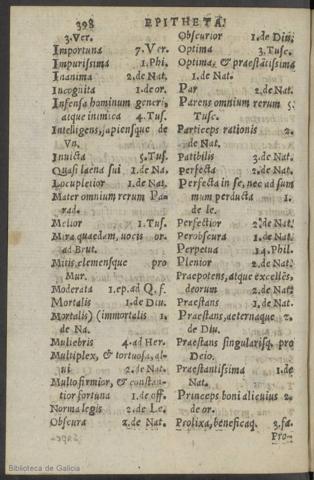 398 EPITHETA.
3.Ver.
Importuna 7.Ver.
Impurissima 1.Phi.
Inanima 2.de Nat.
Incognita 1.de or.
Infensa hominum generi,
atque inimica 4.Tusc.
Intelligens, sapiensque de
Vn.
Inuicta 5.Tus.
Quasi laena sui 1.de Na.
Locupletior 1.de Nat.
Mater omnium rerum Pa-
rad.
Melior 1.Tus.
Mira quaedam, uocis or.
ad Brut.
Mitis, clemensque pro
Mur.
Moderata 1.ep.ad Q.f.
Mortalis 1.de Diu.
Mortalis) (immortalis 1.
de Na.
Muliebris 4.ad Her.
Multiplex, & tortuosa, al-
ui 2.de Nat.
Multo firmior, & constan-
tior fortuna 1.de off.
Norma legis 2.de Le.
Obscura 2.de Nat.
Obscurior 1.de Din.
Optima 3.Tusc.
Optima, & praestãtissima
1.de Nat.
Par 1.de Nat.
Parens omnium rerum 5.
Tusc.
Particeps rationis 2.
de Nat.
Patibilis 3.de Nat.
Perfecta 2.de Nat.
Perfecta in se, nec ad sum
mum perducta 1.
de le.
Perfectior 2.de Nat.
Perobscura 1.de Nat.
Perpetua 14.Phil.
Plenior 2.de Nat.
Praepotens, atque excellẽs,
deorum 2.de Nat.
Praestans 1.de Nat.
Praestans, aeternaque 2.
de Diu.
Praestans singularisq́; pro
Deio.
Praestantissima 1.de
Nat.
Princeps boni alicuius 2.
de or.
Prolixa, beneficaq́; 3.fa.
Pro-
Biblioteca de Galicia